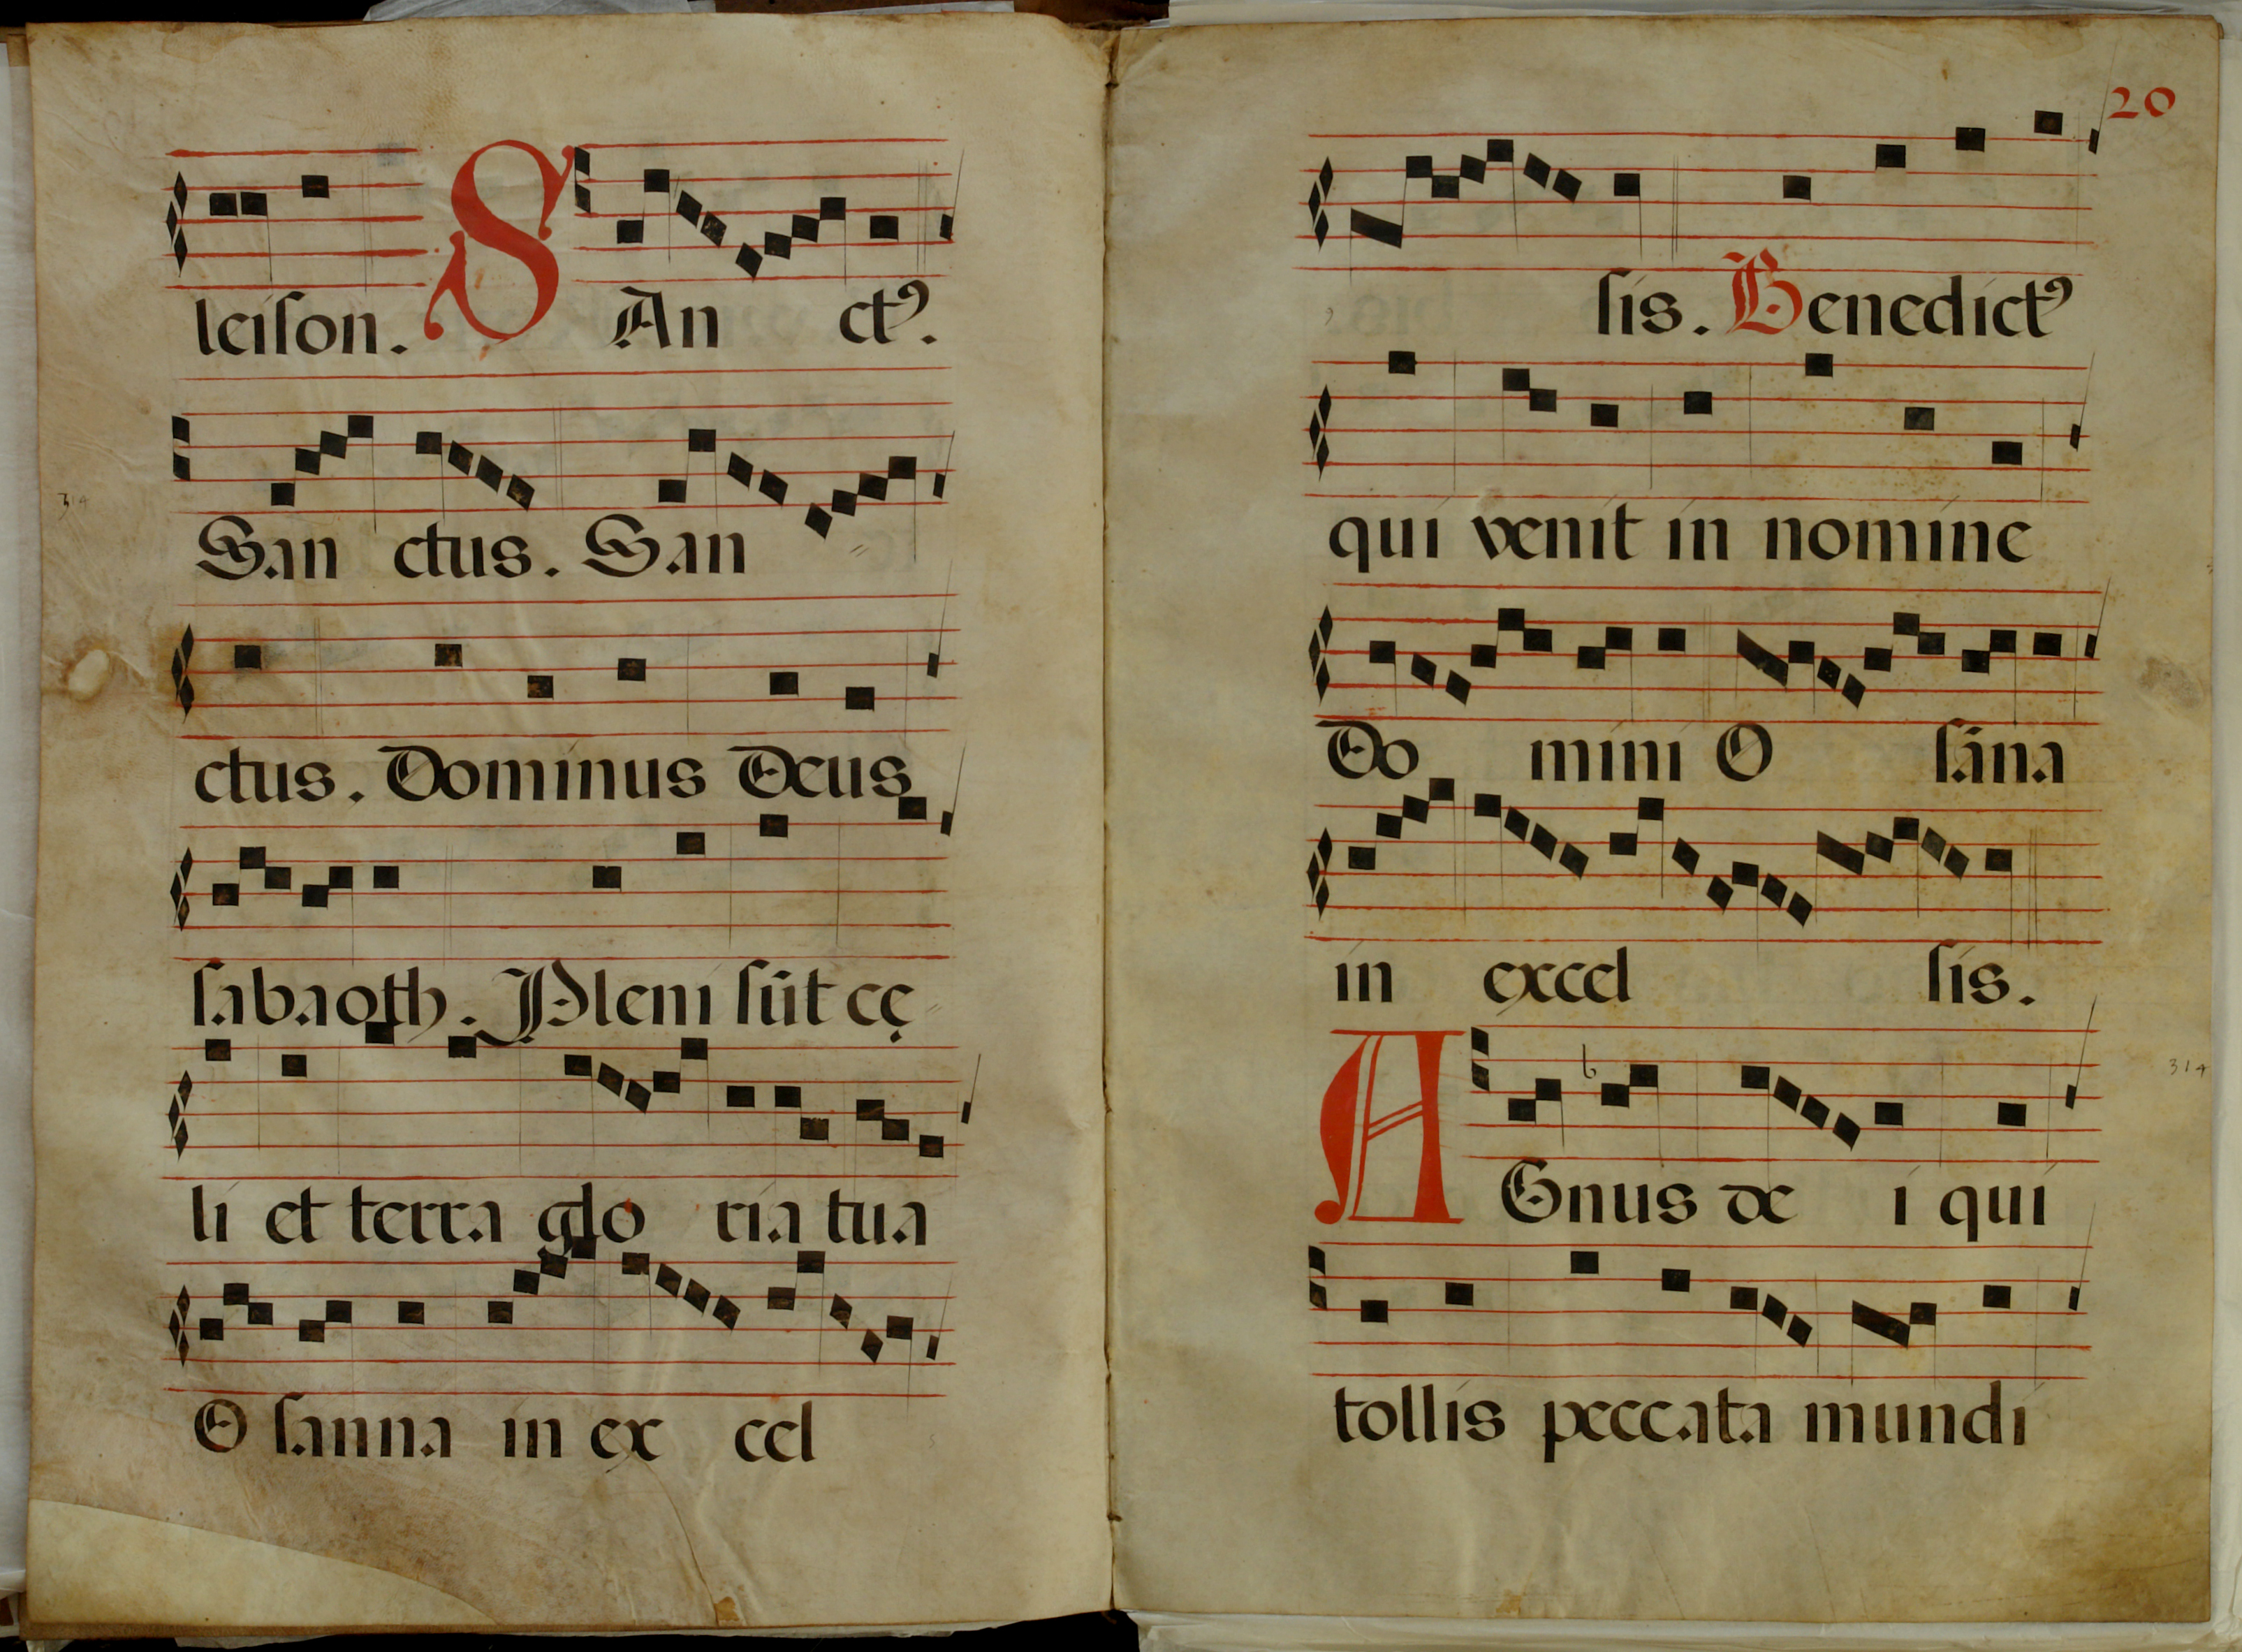 leiſon. SAn ctꝰ.
314
San ctus. San =
ctus. Dominus Deus
ſabaoth. Pleni ſūt cę=
li et terra glo ria tua
O ſanna in ex cel
20
ſis. Benedictꝰ
qui venit in nomine
Do mini O ſana
in excel ſis.
AGnus de i qui
314
tollis peccata mundi